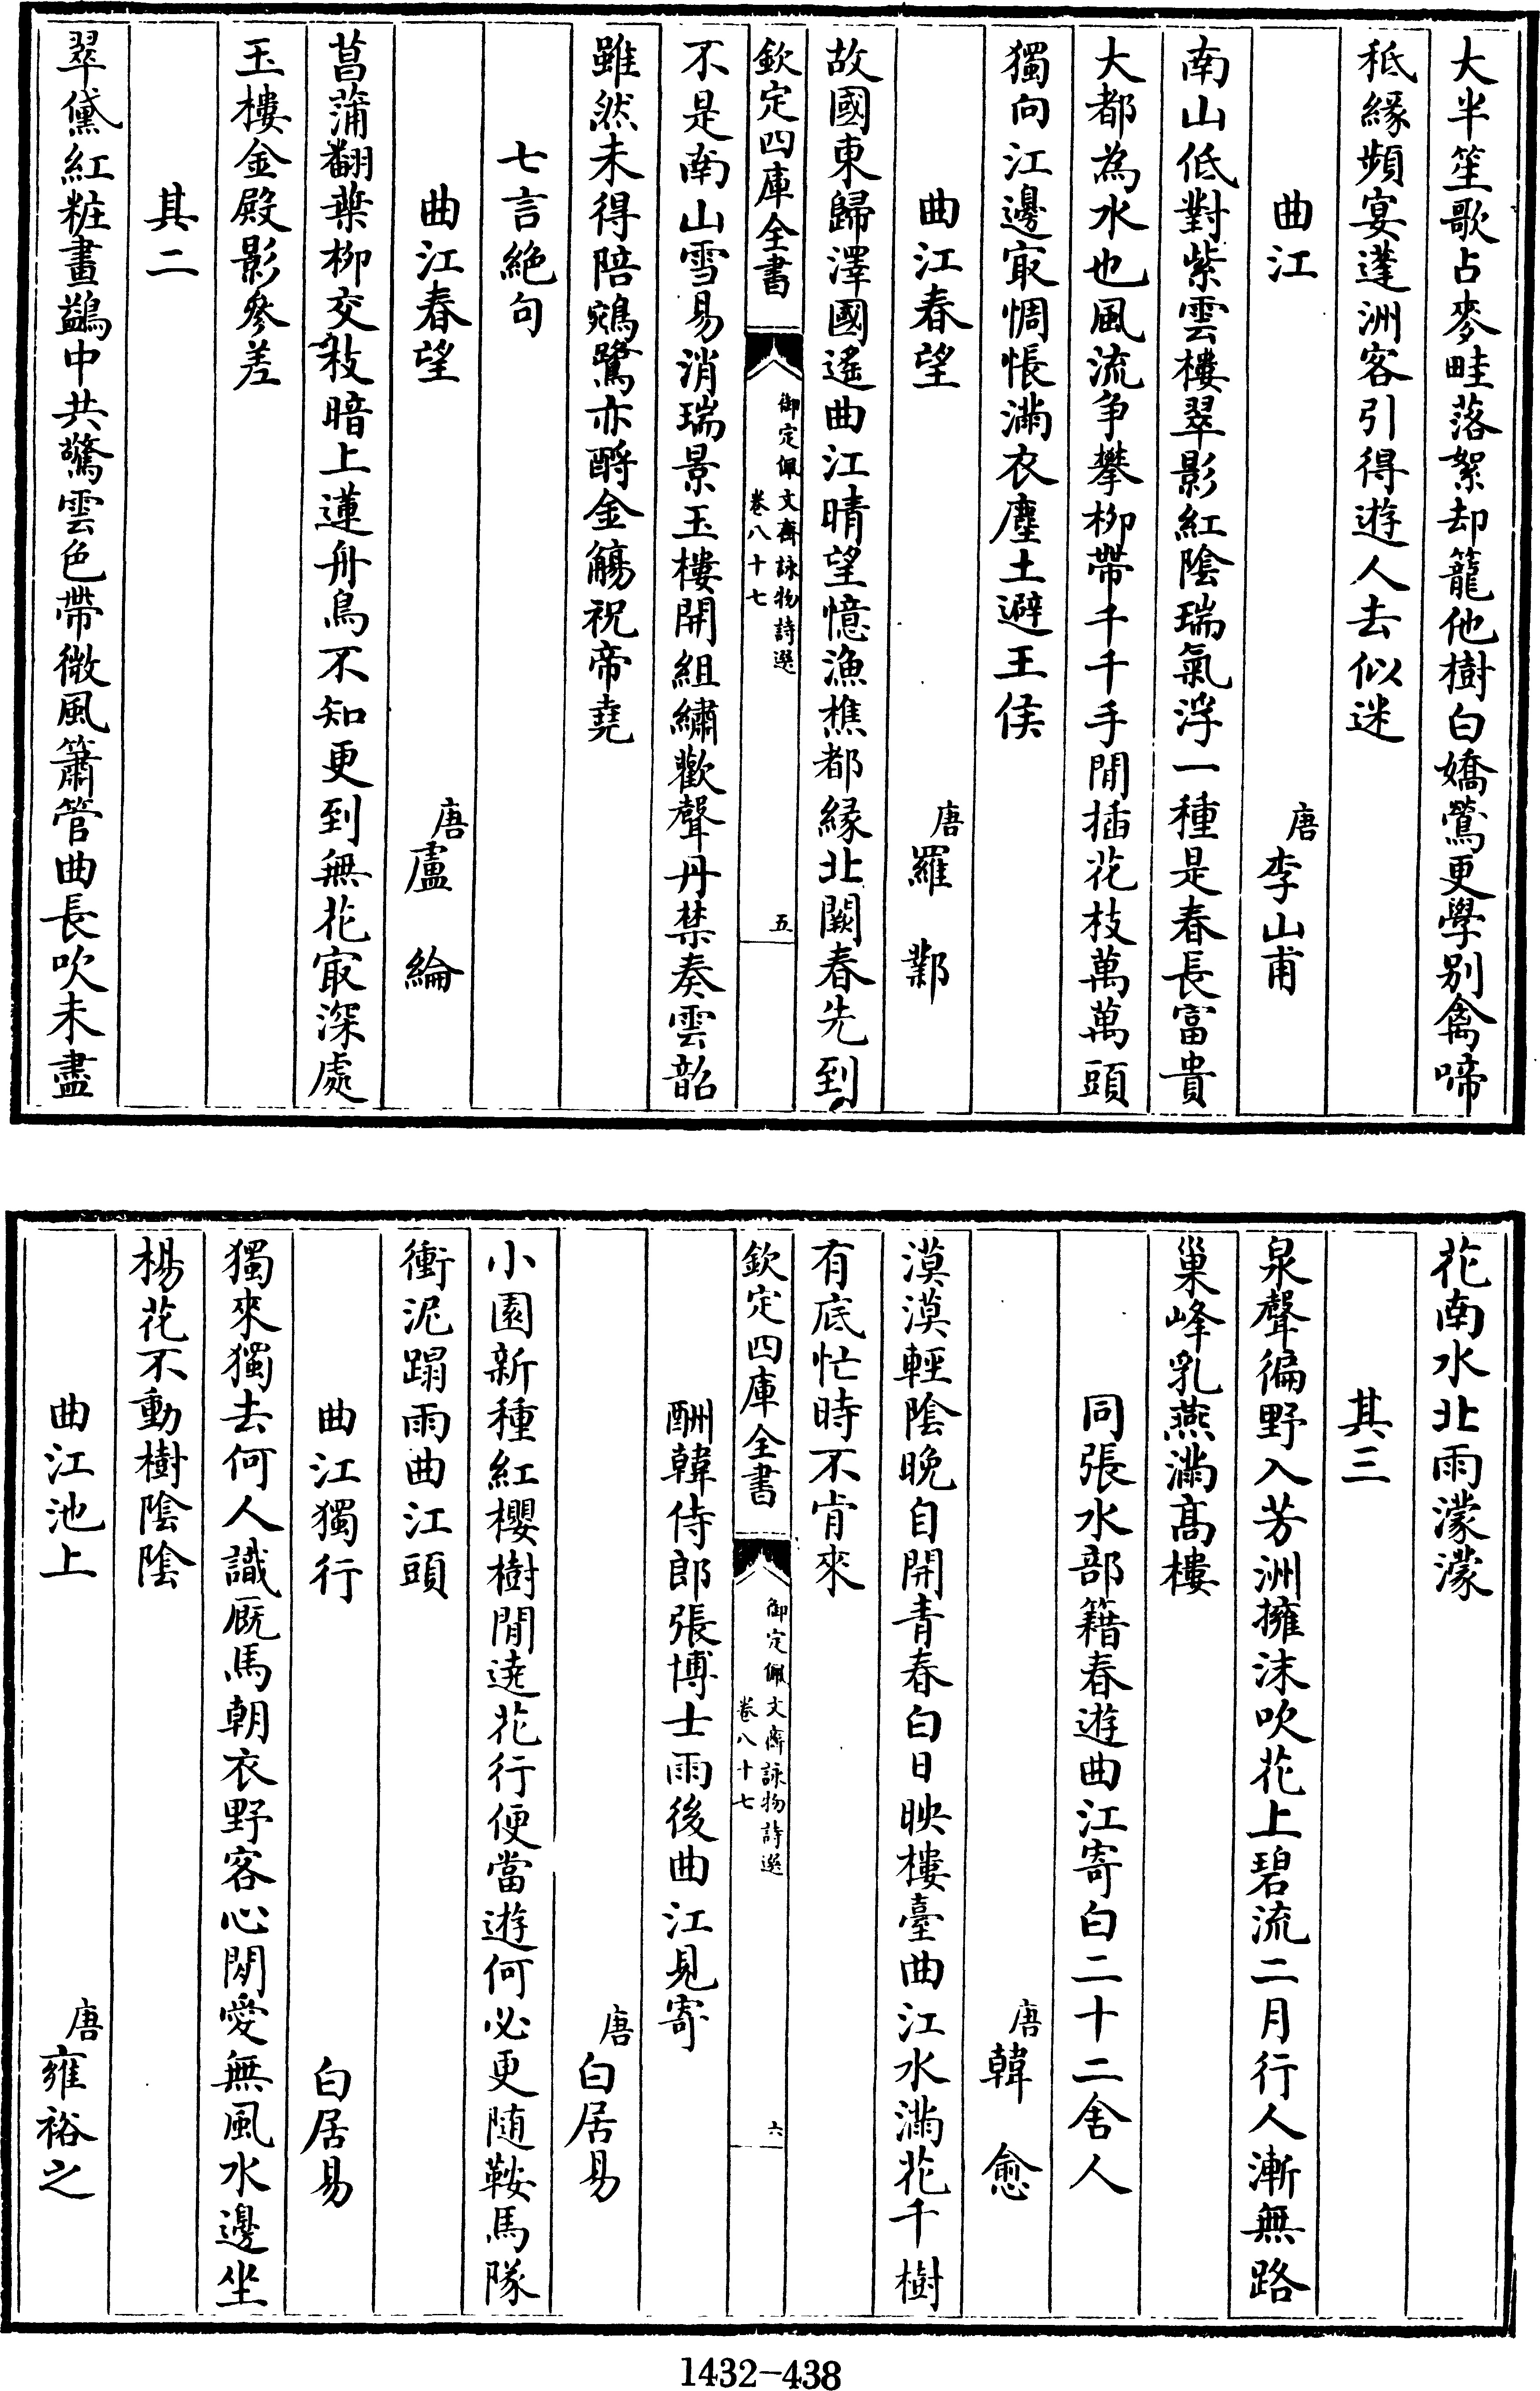 大半笙歌占麥畦落絮却籠他樹白嬌鶯更學别禽啼
秪緣頻宴蓬洲客引得遊人去似迷
曲江
唐李山甫
南山低對紫雲樓翠影紅隂瑞氣浮一種是春長富貴
大都為水也風流争攀栁帶千千手閒插花枝萬萬頭
獨向江邊㝡惆悵滿衣塵土避王侯
曲江春望
唐羅鄴
故國東歸澤國遙曲江晴望憶漁樵都緣北闕春先到
欽定四庫全書
御定佩文齋詠物詩選
卷八十七
五
不是南山雪易消瑞景玉樓開組繡歡聲丹禁奏雲韶
雖然未得陪鵷鷺亦酹金觴祝帝堯
七言絶句
曲江春望
唐盧綸
菖蒲翻葉栁交枝暗上蓮舟鳥不知更到無花㝡深處
玉樓金殿影參差
其二
翠黛紅粧畫鷁中共驚雲色帶微風簫管曲長吹未盡
花南水北雨濛濛
其三
泉聲徧野入芳洲擁沫吹花上碧流二月行人漸無路
巢峰乳燕滿髙樓
同張水部籍春遊曲江寄白二十二舍人
唐韓愈
漠漠輕隂晚自開青春白日映樓臺曲江水滿花千樹
有底忙時不肯來
欽定四庫全書
御定佩文齋詠物詩選
卷八十七
六
酬韓侍郎張博士雨後曲江見寄
唐白居易
小園新種紅櫻樹閒遶花行便當遊何必更随鞍馬隊
衝泥蹋雨曲江頭
曲江獨行
白居易
獨來獨去何人識厩馬朝衣野客心閒愛無風水邊坐
楊花不動樹隂隂
曲江池上
唐雍裕之
1432-438